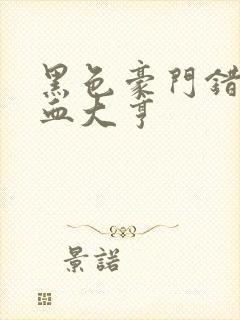 黑色豪門錯
血大亨
景諾